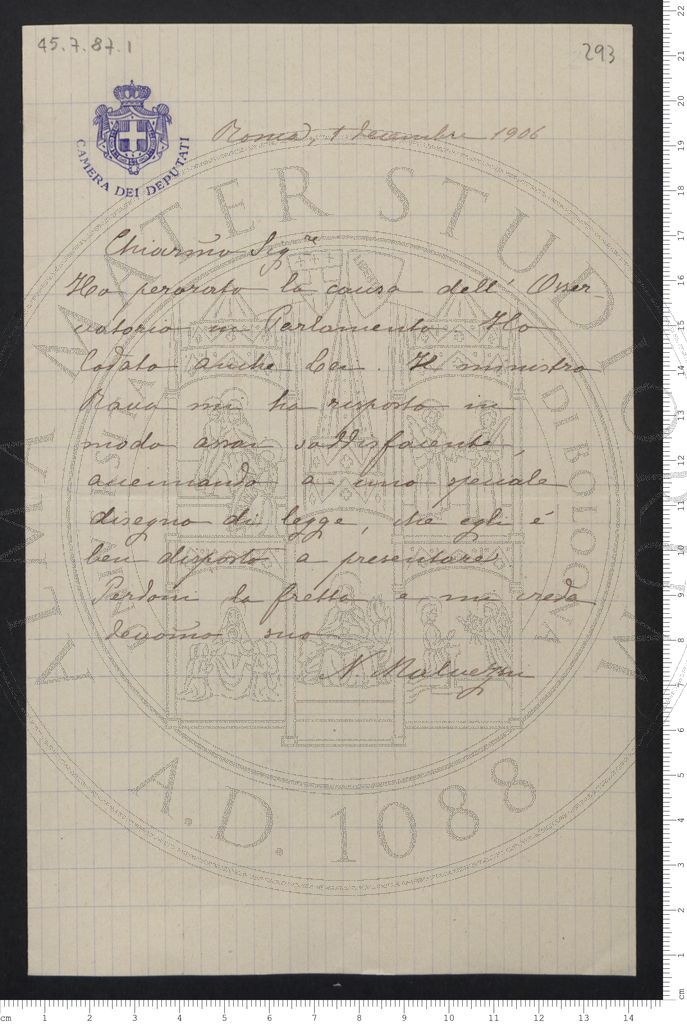 45.7.87.1
293
CAMERA DEI DEPUTATI
Roma, 1 decembre 1906
Chiarmo Sigre
Ho perorato la causa dell' Osser-
vatorio in Parlamento. Ho
lodato anche Lei. Il ministro
Rava mi ha risposto in
modo assai soddisfacente,
accennando a uno speciale
disegno di legge, che egli è
ben disposto a presentare.
Perdoni la fretta e mi creda
devotmo suo
N. Malvezzi
ALMA MATER STUDIORUM
A.D. 1088